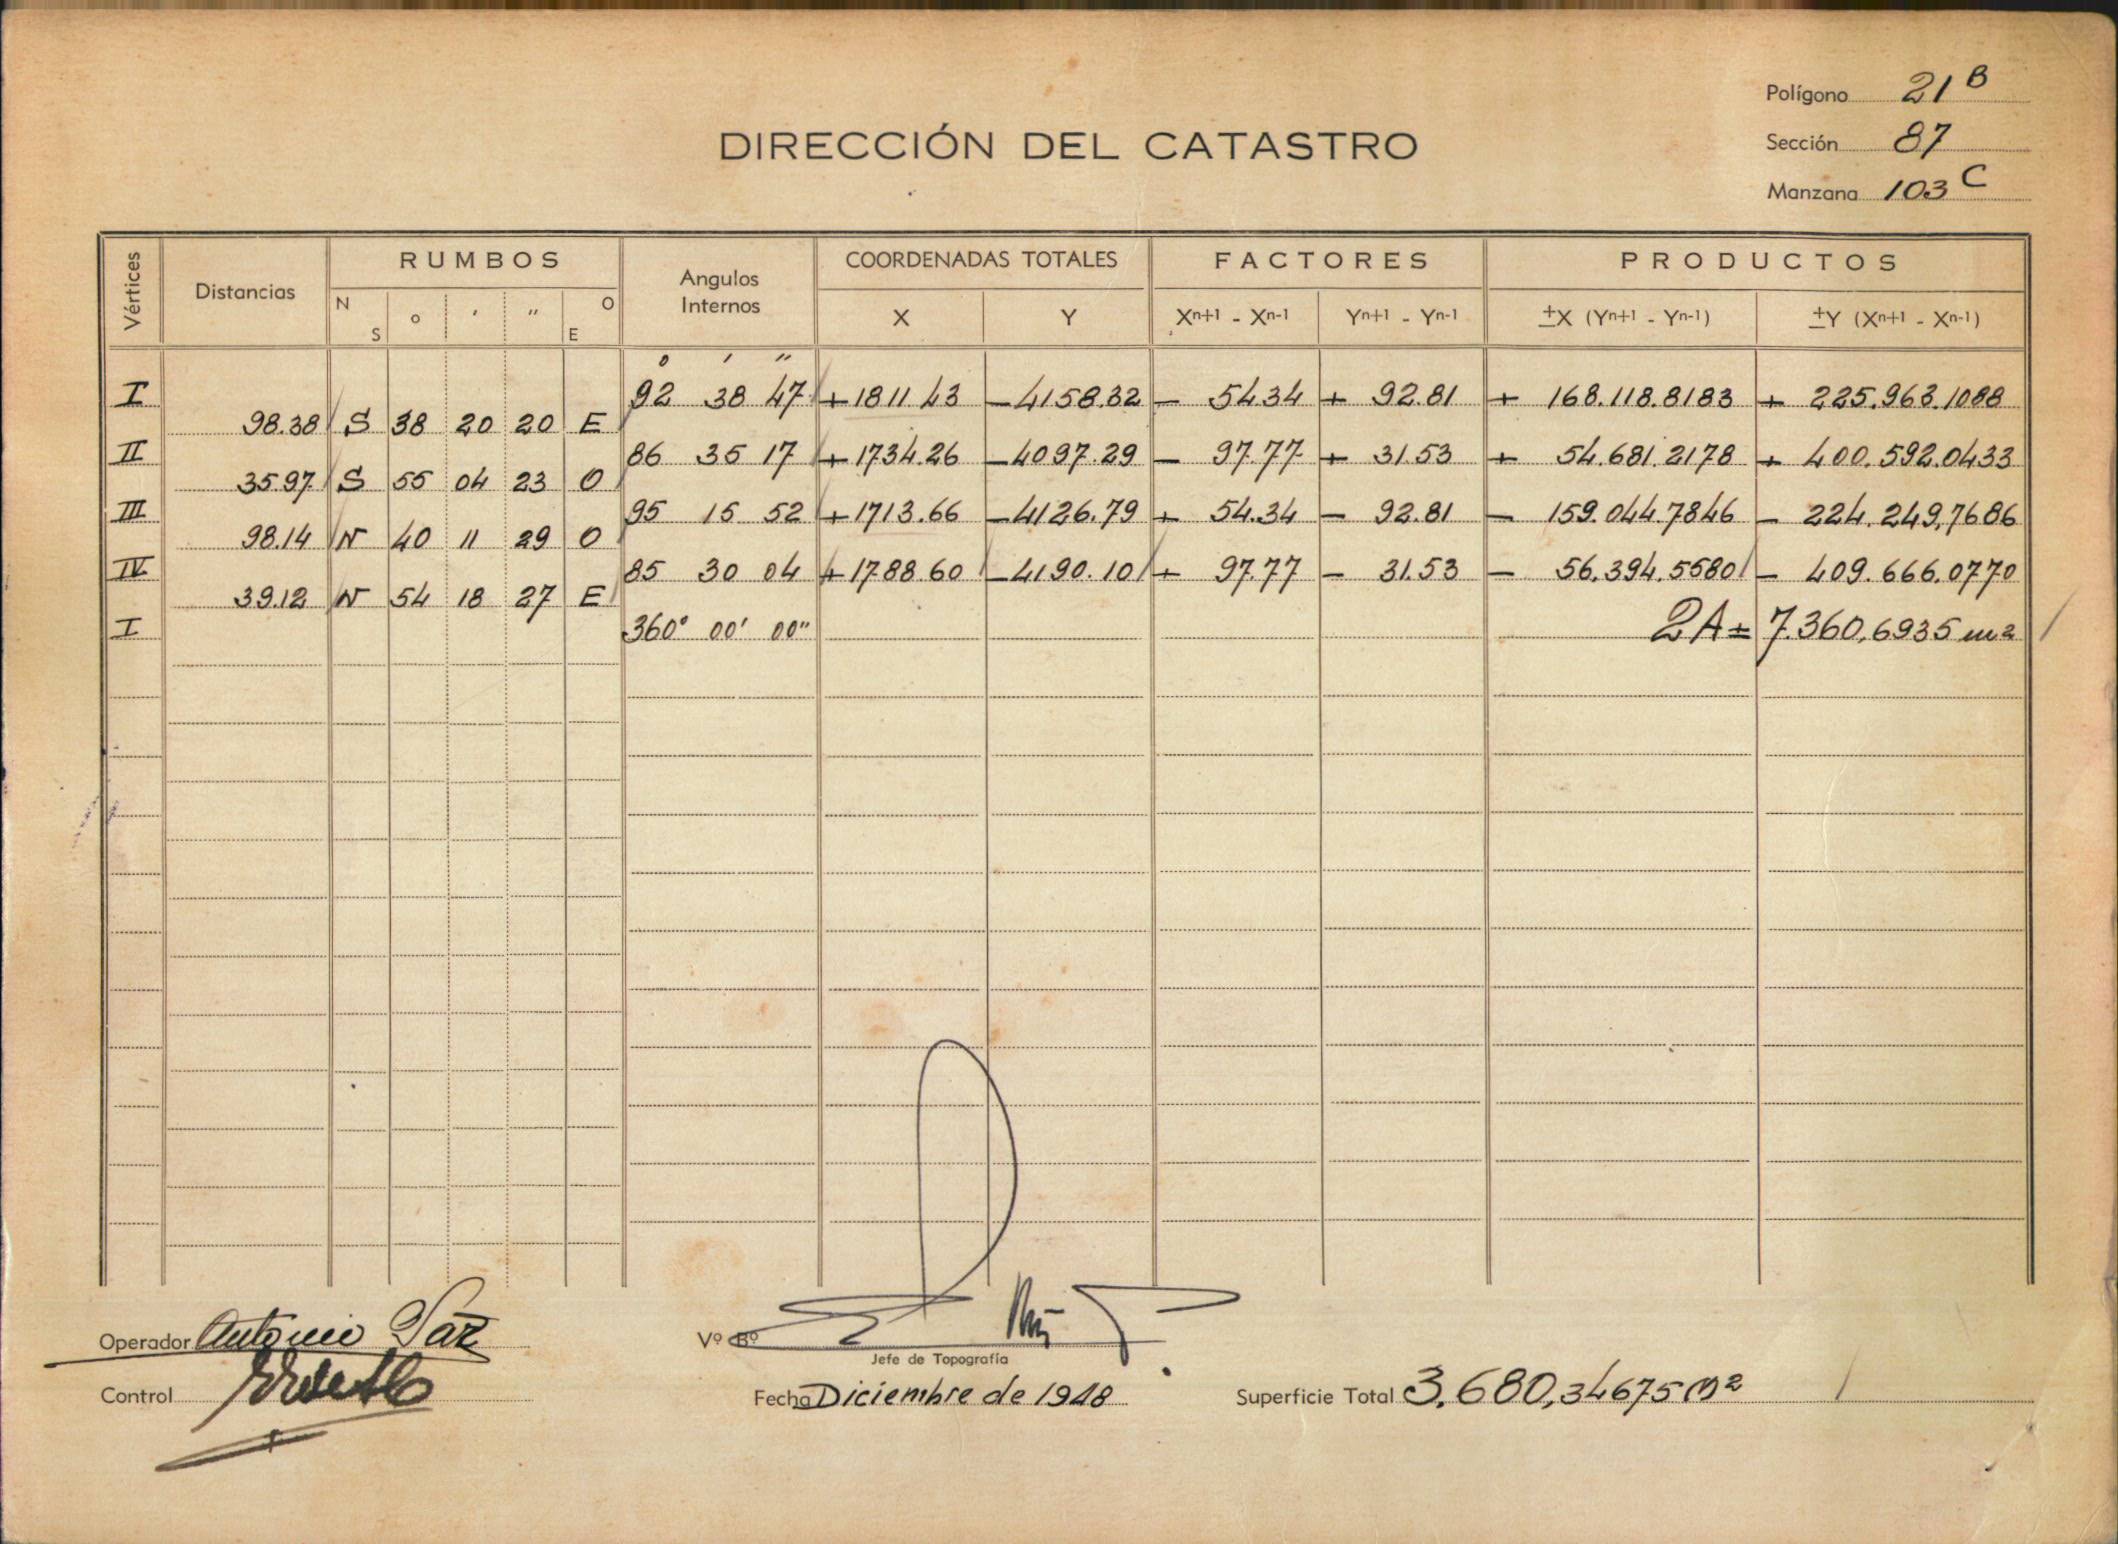 Polígono 21 B
DIRECCIÓN DEL CATASTRO
Sección 87
Manzana 103 C
Vértices Distancias RUMBOS Angulos Internos COORDENADAS TOTALES FACTORES PRODUCTOS
N S ° ' " O E X Y Xn+1 - Xn-1 Yn+1 - Yn-1 ±X (Yn+1 - Yn-1) ±Y (Xn+1 - Xn-1)
° ' "
I 92 38 47 +1811 43 -4158.32 - 54.34 + 92.81 + 168.118.8183 + 225.963.1088
98.38 S 38 20 20 E
II 86 35 17 +1734.26 -4097.29 - 97.77 + 31.53 + 54.681.2178 + 400.592.0433
35.97 S 55 04 23 O
III 95 15 52 +1713.66 -4126.79 + 54.34 - 92.81 - 159.044.7846 - 224.249,7686
98.14 N 40 11 29 O
IV 85 30 04 +1788.60 -4190.10 + 97.77 - 31.53 - 56.394.5580 - 409.666.0770
39.12 N 54 18 27 E
I 360° 00' 00" 2A = 7.360,6935 m2
Operador Antonio Paz
Vº Bº
Jefe de Topografía
Control
Fecha Diciembre de 1948
Superficie Total 3.680,34675 m2